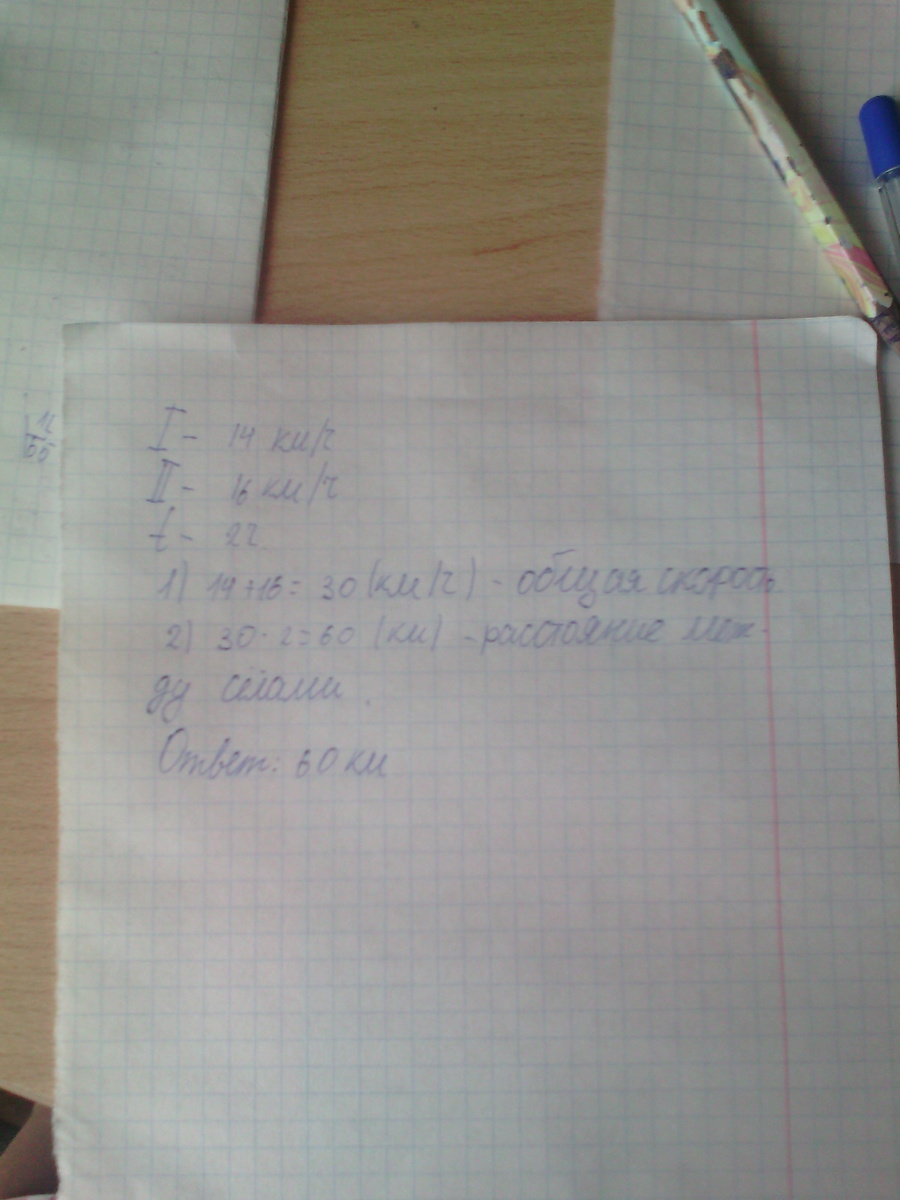 I - 14 км/ч
II - 16 км/ч
t - 2ч
1) 14+16= 30 (км/ч) - общая скорость
2) 30·2=60 (км) - расстояние меж-
ду сёлами.
Ответ: 60 км